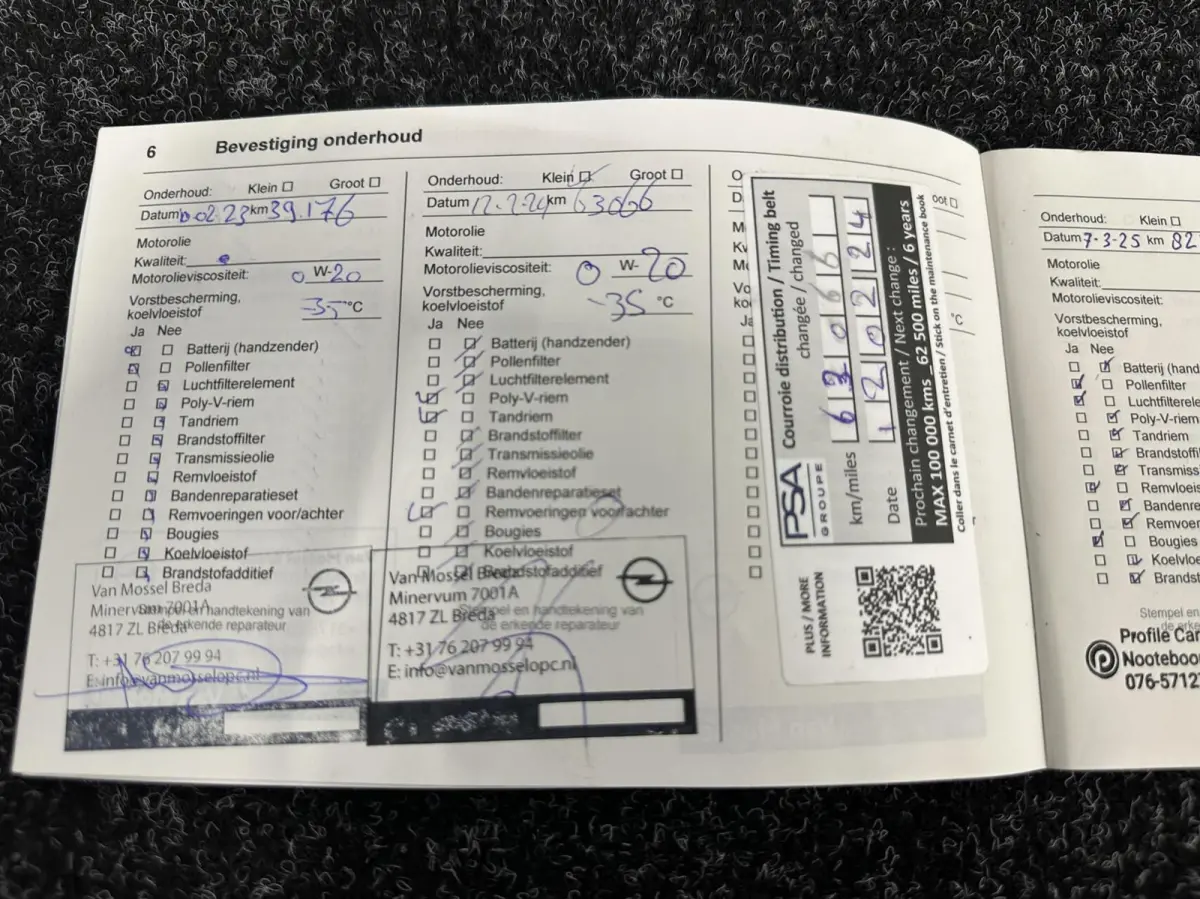 6 Bevestiging onderhoud
Onderhoud: Klein Groot
Datum 02.23 km 39.176
Motorolie
Kwaliteit:
Motorolieviscositeit: 0 W-20
Vorstbescherming,
koelvloeistof -35 °C
Ja Nee
Batterij (handzender)
Pollenfilter
Luchtfilterelement
Poly-V-riem
Tandriem
Brandstoffilter
Transmissieolie
Remvloeistof
Bandenreparatieset
Remvoeringen voor/achter
Bougies
Koelvloeistof
Brandstofadditief
Stempel en handtekening van
de erkende reparateur
Van Mossel Breda
Minervum 7001A
4817 ZL Breda
T: +31 76 207 99 94
E: info@vanmosselopc.nl
Onderhoud: Klein Groot
Datum 12.2.24 km 63066
Motorolie
Kwaliteit:
Motorolieviscositeit: 0 W-20
Vorstbescherming,
koelvloeistof -35 °C
Ja Nee
Batterij (handzender)
Pollenfilter
Luchtfilterelement
Poly-V-riem
Tandriem
Brandstoffilter
Transmissieolie
Remvloeistof
Bandenreparatieset
Remvoeringen voor/achter
Bougies
Koelvloeistof
Brandstofadditief
Stempel en handtekening van
de erkende reparateur
Van Mossel Breda
Minervum 7001A
4817 ZL Breda
T: +31 76 207 99 94
E: info@vanmosselopc.nl
PSA
GROUPE
Courroie distribution / Timing belt
changée / changed
km/miles 63066
Date 120224
Prochain changement / Next change :
MAX 100 000 kms _ 62 500 miles / 6 years
Coller dans le carnet d'entretien / Stick on the maintenance book
PLUS / MORE
INFORMATION
oot
°C
Ja
Onderhoud: Klein
Datum 7-3-25 km 82
Motorolie
Kwaliteit:
Motorolieviscositeit:
Vorstbescherming,
koelvloeistof
Ja Nee
Batterij (hand
Pollenfilter
Luchtfiltere
Poly-V-riem
Tandriem
Brandstoffi
Transmiss
Remvloeis
Bandenre
Remvoer
Bougies
Koelvloe
Brandst
Stempel en
de erke
Profile Car
Nooteboo
076-5712